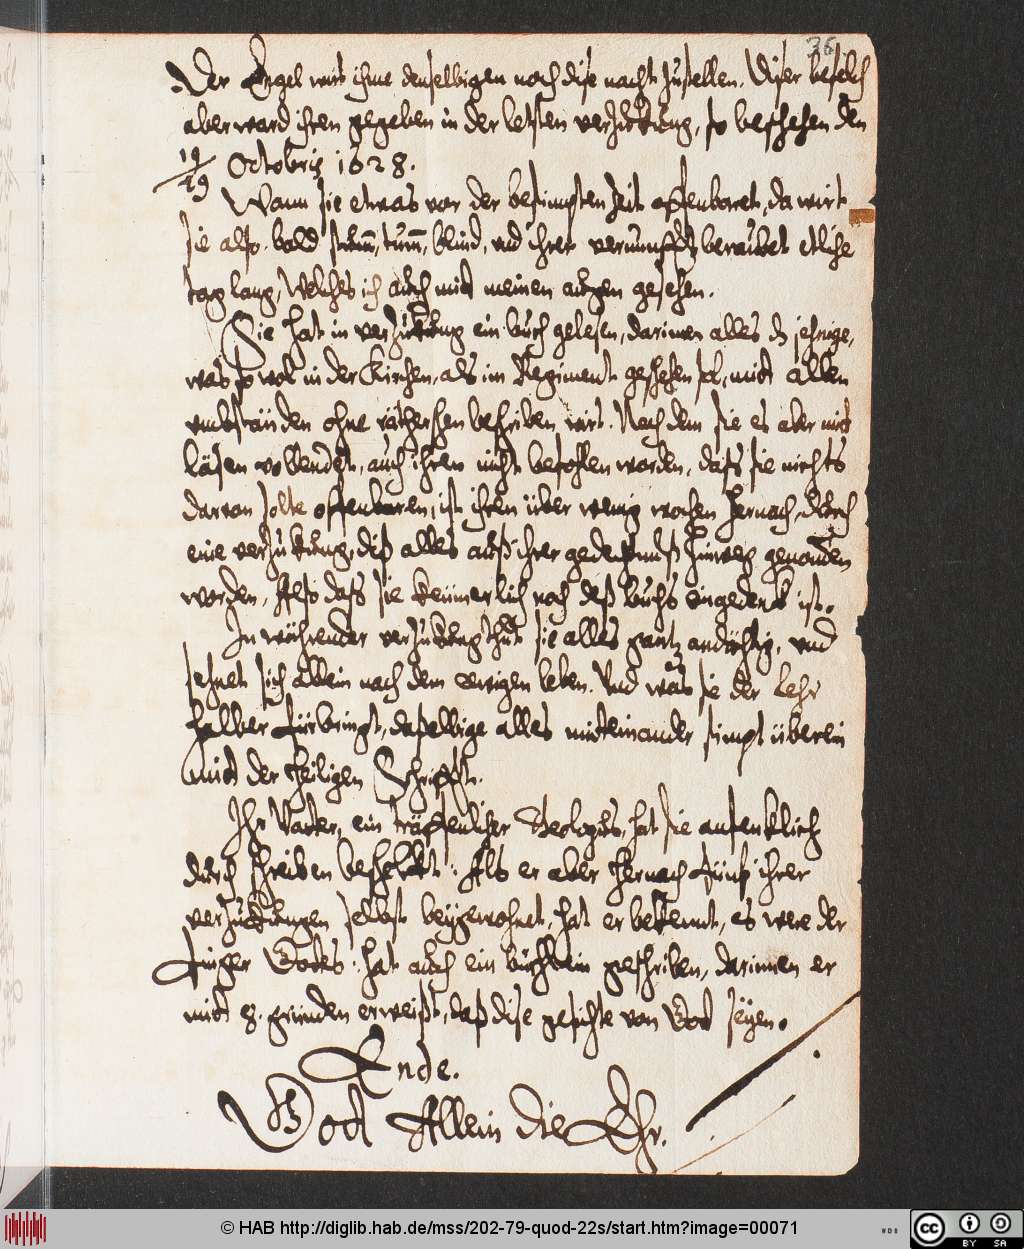 36
Der Engel wirt ihme denselbigen noch dise nacht zustellen. Diser befelch
aber ward ihren gegeben in der letsten verzukung, so beschehen den
19/29 Octobris 1628.
Wann sie etwas vor der bestimpten Zeit offenbaret, da wirt
sie also bald stum, turm, blind, vnd ihrer vernunfft beraubet etliche
tag lang, Welches ich auch mit meinen augen gesehen.
Sie hat in verzukung ein buch gelesen, darinnen alles dz jehnige,
was so wol in der Kirchen, als im Regiment geschehen sol, mit allen
vmbständen ohne rätherschen beschriben wirt. Nach dem sie es aber mit
läsen vollendet, auch ihren nicht befohlen worden, dass sie nichts
darvon solte offenbaren, ist ihren über wenig wochen hernach, durch
eine verzukung, diß alles auß ihrer gedechtnuß hinweg genomen
worden, Also dass sie kümmerlich noch deß buchs ingedenck ist.
In währender verzukung thut sie alles gantz andächtig, vnd
sehnet sich allein nach dem ewigen leben. Vnd was sie der Lehr
halber fürbringt, dasselbige alles miteinander stimpt überein
mit der Heiligen Schrifft.
Ihr Vatter, ein träffenlicher Theologus, hat sie anfenklich
durch schreiben bescholten: Als er aber hernach fünf ihrer
verzukungen selbst beygewohnet, hat er bekennt, es were der
finger Gottes: hat auch ein büchlein geschriben, darinnen er
mit 8. gründen erweißt, daß dise gesichte von Gott seyen.
Ende.
Gott Allein die Ehr.
© HAB http://diglib.hab.de/mss/202-79-quod-22s/start.htm?image=00071
WDB
cc BY SA